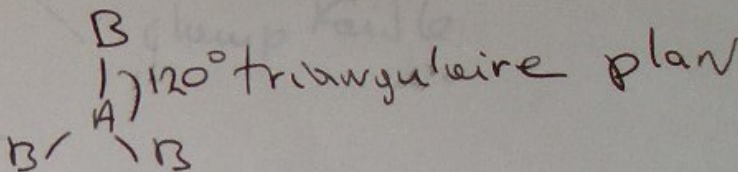 B
120° triangulaire plan
A
B B